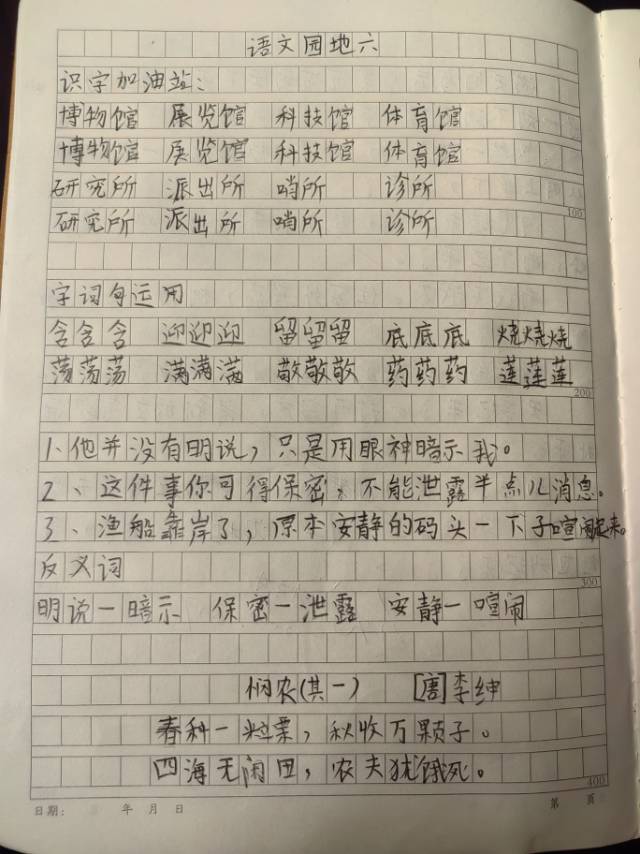 语文园地六
识字加油站:
博物馆 展览馆 科技馆 体育馆
博物馆 展览馆 科技馆 体育馆
研究所 派出所 哨所 诊所
研究所 派出所 哨所 诊所
100
字词句运用
含含含 迎迎迎 留留留 底底底 烧烧烧
荡荡荡 满满满 敬敬敬 药药药 莲莲莲
200
1、他并没有明说，只是用眼神暗示我。
2、这件事你可得保密，不能泄露半点儿消息。
3、渔船靠岸了，原本安静的码头一下子喧闹起来。
反义词
300
明说一暗示 保密一泄露 安静一喧闹
悯农(其一) [唐]李绅
春种一粒粟，秋收万颗子。
四海无闲田，农夫犹饿死。
400
日期: 年 月 日 第 页